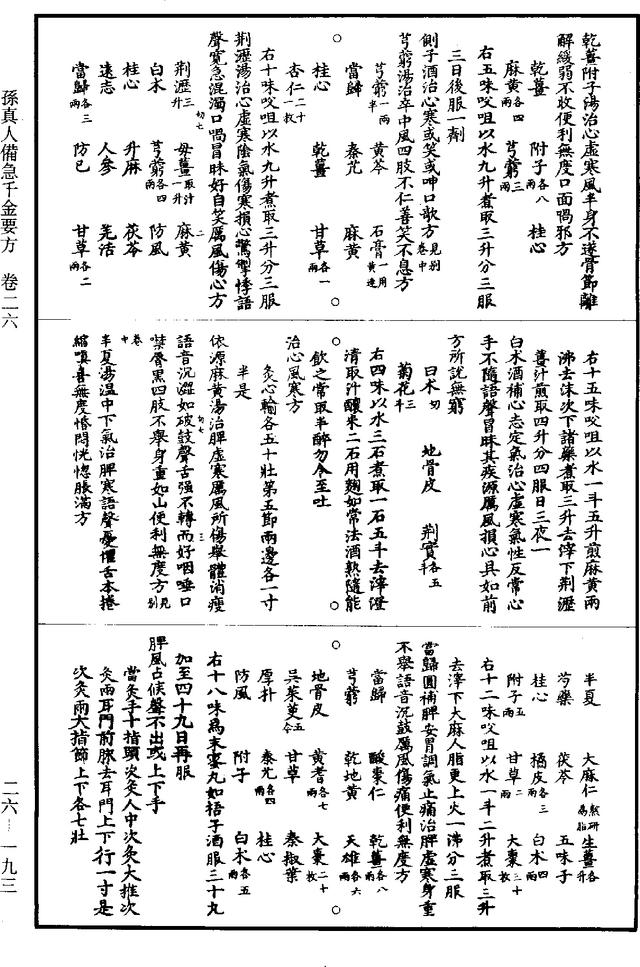 乾薑附子湯治心虛寒風半身不遂骨節離
解緩弱不收便利無度口面喎邪方
乾薑 附子各八兩 桂心
麻黃各四兩 芎藭三兩
右五味㕮咀以水九升煮取三升分三服
三日後服一劑
側子酒治心寒或笑或呻口歌方見別卷中
芎藭湯治卒中風四肢不仁善笑不息方
芎藭一兩半 黃芩 石膏一用黃連
當歸 秦艽 麻黃
桂心 乾薑 甘草各一兩
杏仁二十一枚
右十味㕮咀以水九升煮取三升分三服
荆瀝湯治心虛寒陰氣傷寒損心驚掣悸語
聲寬急混濁口喎冒昧好自笑厲風傷心方
荆瀝三升 母薑切七取汁一升 麻黃
白朮 芎藭各四兩 防風
桂心 升麻 茯苓
遠志 人參 羌活
當歸各三兩 防已 甘草各二兩
右十五味㕮咀以水一斗五升煎麻黃兩
沸去沫次下諸藥煮取三升去滓下荆瀝
薑汁煎取四升分四服日三夜一
白朮酒補心志定氣治心虛寒氣性反常心
手不隨語聲冒昧其疾源厲風損心具如前
方所說無窮
白朮切 地骨皮 荆實各五斗
菊花三斗
右四味以水三石煮取一石五斗去滓澄
清取汁釀米二石用麴如常法酒熟隨能
飲之常取半醉勿令至吐
治心風寒方
灸心輸各五十壯第五節兩邊各一寸
半是
依源麻黃湯治脾虛寒厲風所傷舉體消瘦
語音沉澀如破鼓聲舌强不轉而好咽唾口
噤脣黑四肢不舉身重如山便利無度方見別卷中
半夏湯溫中下氣治脾寒語聲憂懼舌本捲
縮嗔喜無度惛悶恍惚脹滿方
半夏 大麻仁熬研為脂 生薑各一升
芍藥 茯苓 五味子
桂心 橘皮各三兩 白朮四兩
附子五兩 甘草二兩 大棗三十枚
右十二味㕮咀以水一斗二升煮取三升
去滓下大麻人脂更上火一沸分三服
當歸圓補脾安胃調氣止痛治脾虛寒身重
不舉語音沉鼓厲風傷痛便利無度方
當歸 酸棗仁 乾薑各八兩
芎藭 乾地黃 天雄各六兩
地骨皮 黃耆各七兩 大棗二十枚
吳茱萸五合 甘草 秦椒葉
厚朴 秦艽各四兩 桂心
防風 附子 白朮各五兩
右十八味為末蜜丸如梧子酒服三十丸
加至四十九日再服
脾風占候聲不出或上下手
當灸手十指頭次灸人中次灸大推次
灸兩耳門前脉去耳門上下行一寸是
次灸兩大指節上下各七壯
孫真人備急千金要方 卷二六
二六—一九三